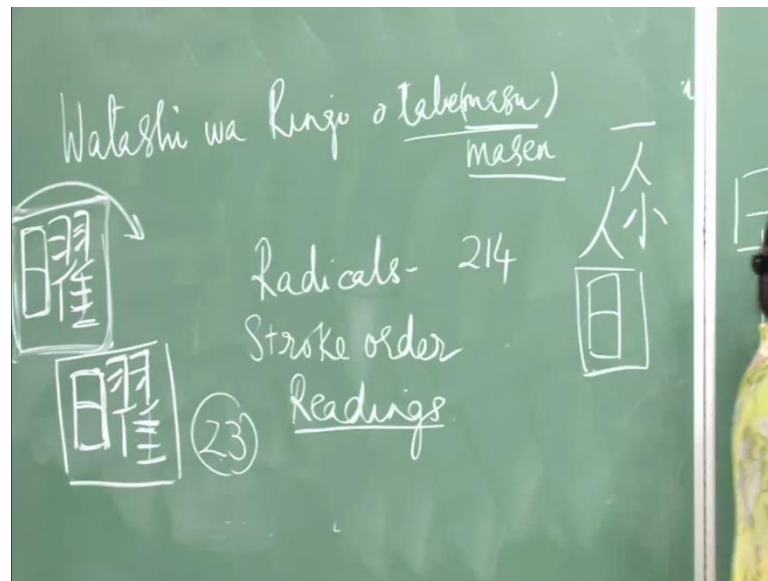 Watashi wa Ringo o tabe(masu)
masen
一
人
人小
日
曜
Radicals- 214
Stroke order
Readings
曜
23